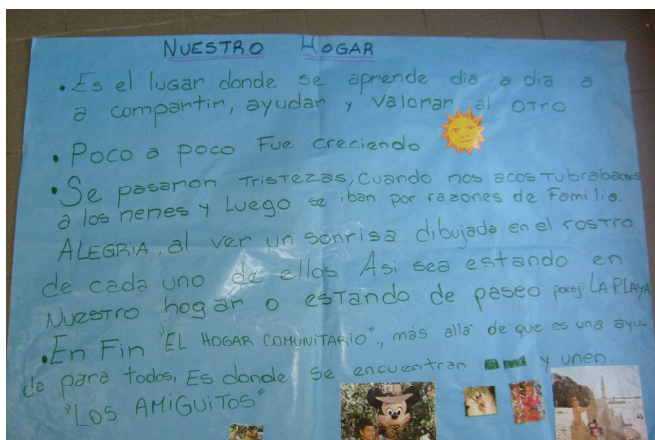 NUESTRO HOGAR
• Es el lugar donde se aprende dia a dia a
a compartir, ayudar y valorar al otro
• Poco a poco fue creciendo
• Se pasaron TRISTEZAS, cuando nos acostubrabamos
a los nenes y Luego se iban por razones de Familia.
ALEGRIA, al ver un sonrisa dibujada en el rostro
de cada uno de ellos Asi sea estando en
Nuestro hogar o estando de paseo por ej LA PLAYA
• En Fin "EL HOGAR COMUNITARIO", más alla de que es una ayu-
da para todos, Es donde se encuentran y unen.
"LOS AMIGUITOS"